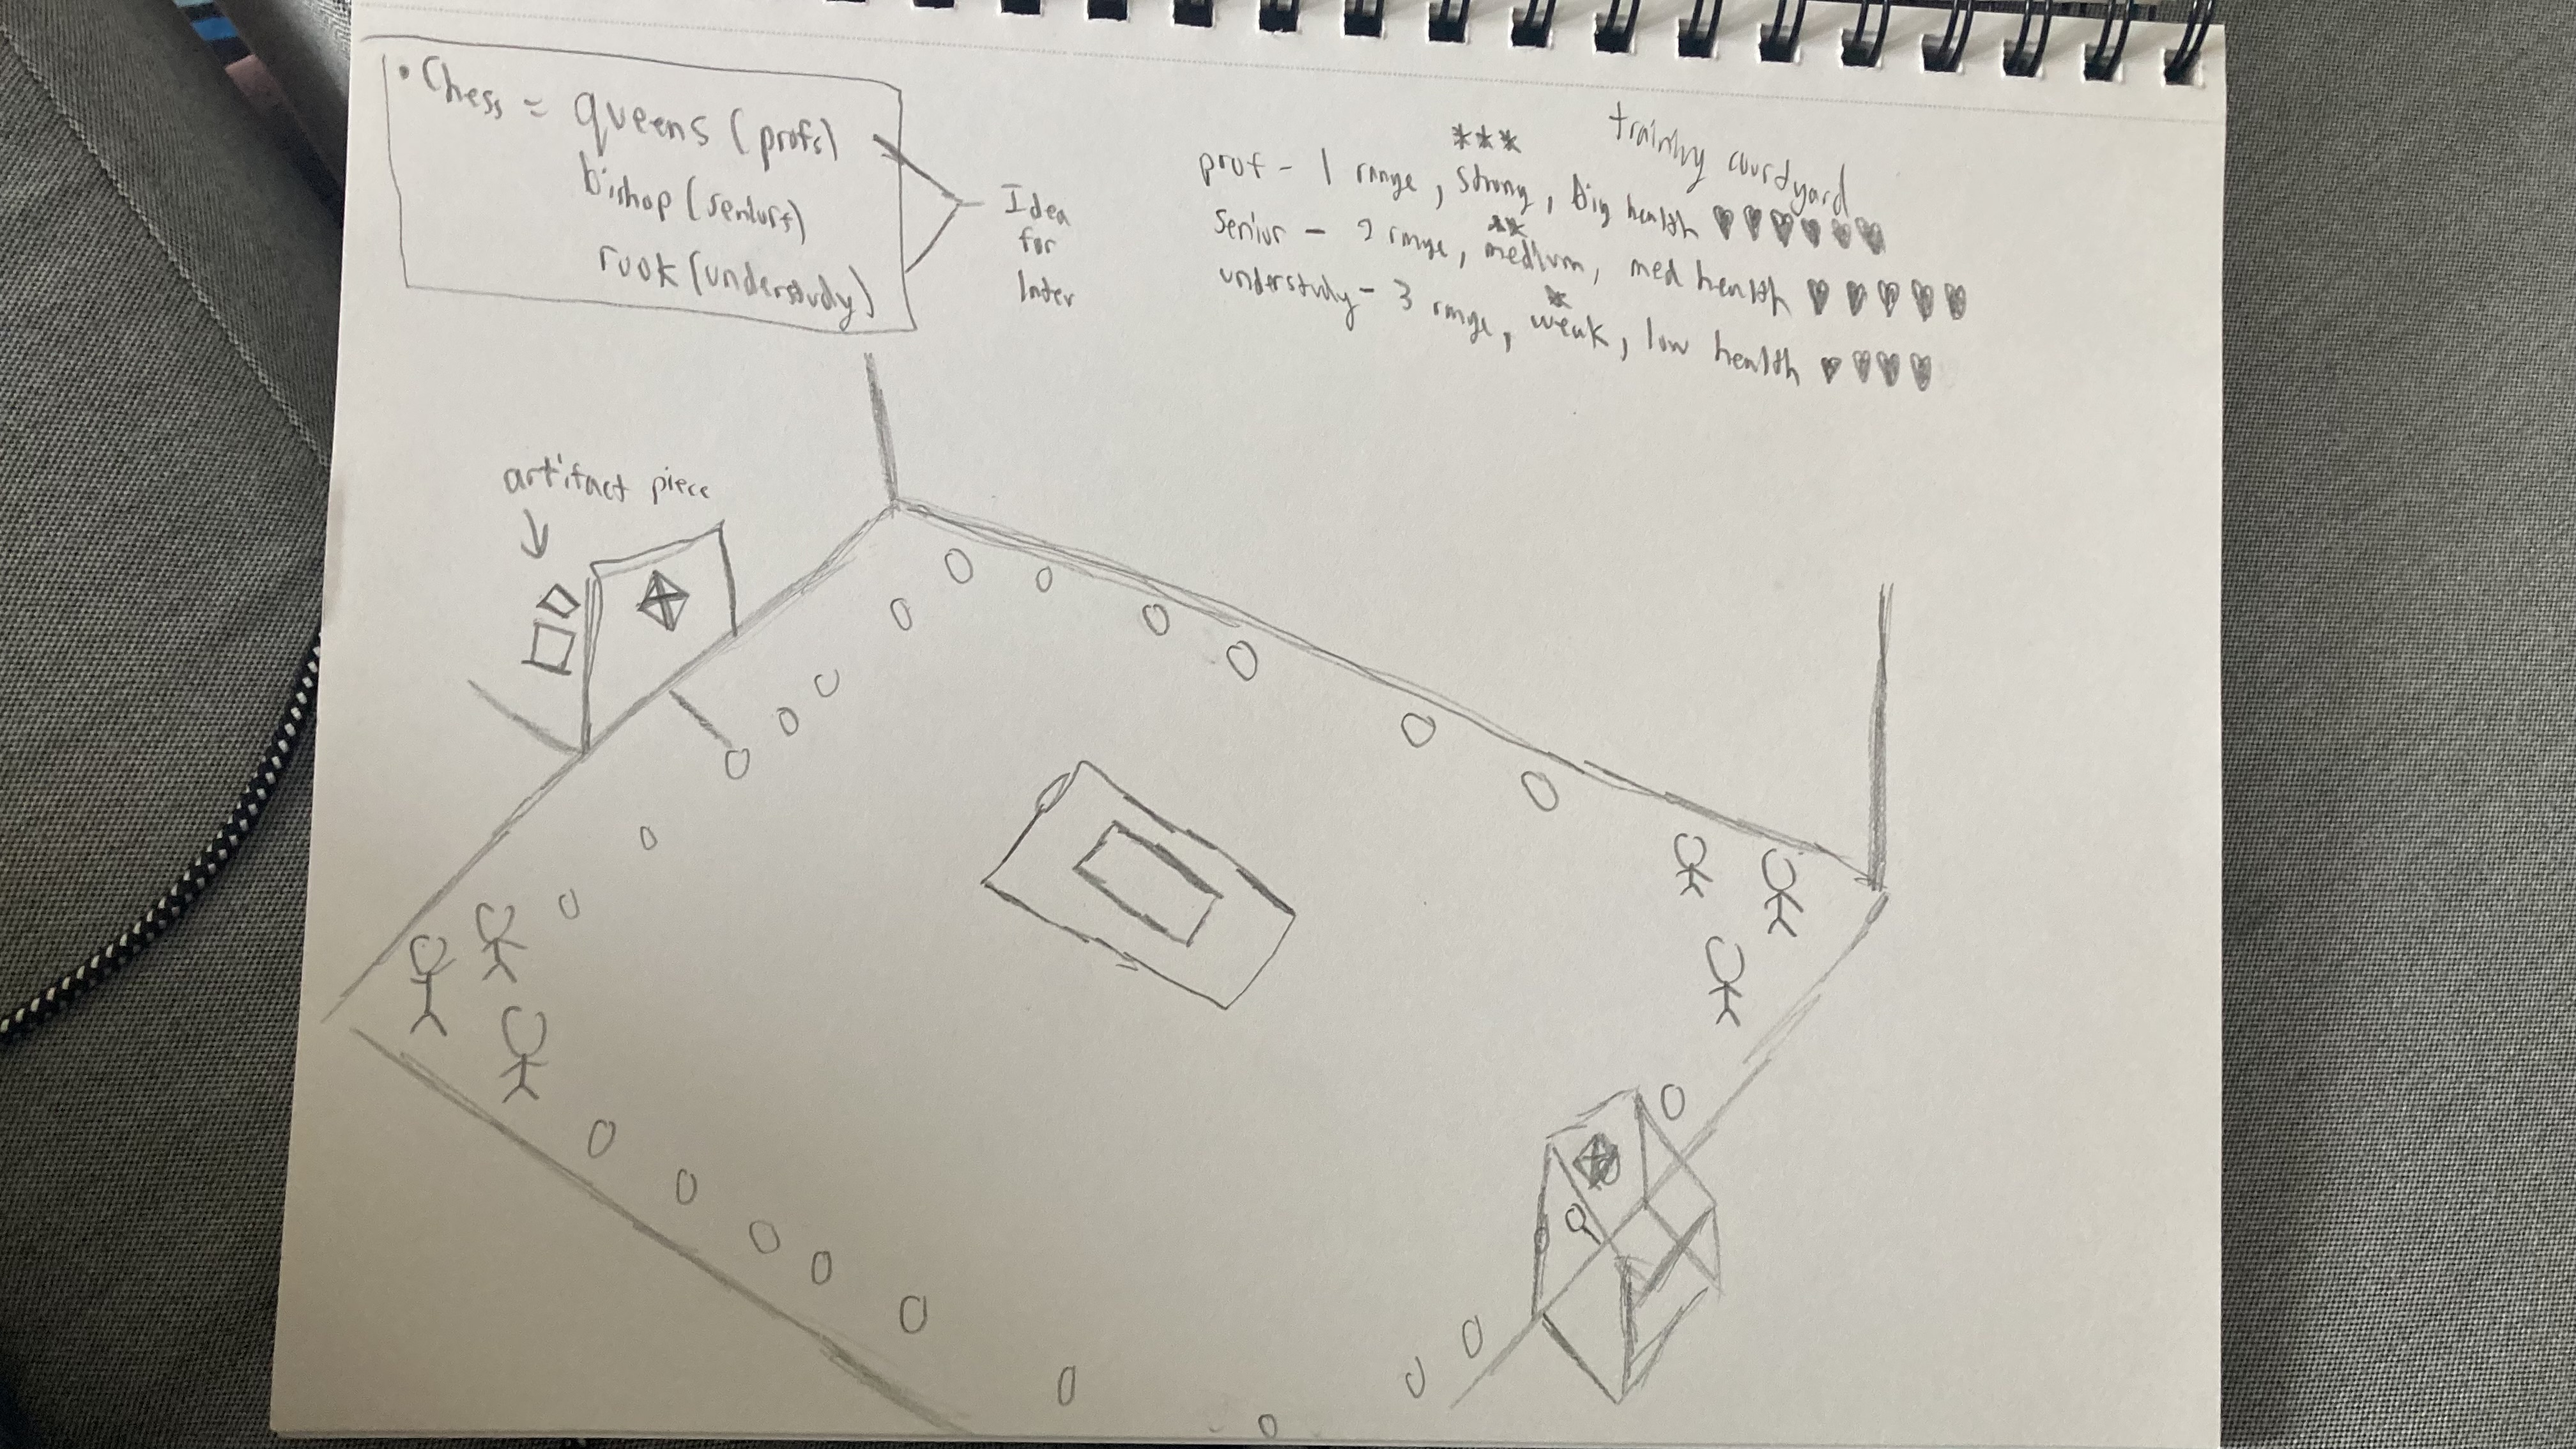 • Chess = queens (profs)
bishop (seniors)
rook (understudy)
Idea
for
later
training courtyard
***
prof - 1 range, strong, big health ♥♥♥♥♥♥
**
senior - 2 range, medium, med health ♥♥♥♥♥
*
understudy - 3 range, weak, low health ♥♥♥♥
artifact piece